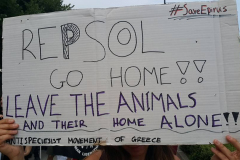 #SaveEpirus
REPSOL
GO HOME!!
LEAVE THE ANIMALS
AND THEIR HOME ALONE!!
ANTISPECIESIST MOVEMENT OF GREECE